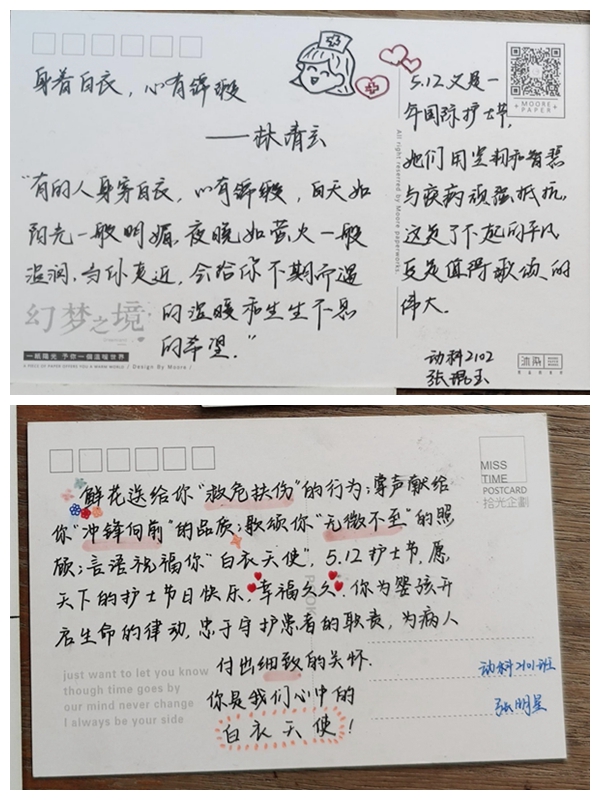 身着白衣，心有锦缎
——林清玄
"有的人身穿白衣，心有锦缎，白天如
阳光一般明媚，夜晚如萤火一般
温润，与他走近，会给你不期而遇
的温暖和生生不息
的希望."
幻梦之境
一纸陽光 予你一個溫暖世界
A PIECE OF PAPER OFFERS YOU A WARM WORLD / Design By Moore /
All right reserved by Moore paperworks.
MOORE
PAPER
5.12又是一
年国际护士节,
她们用坚韧和智慧
与疫病顽强抵抗,
这是了不起的平凡
更是值得歌颂的
伟大.
动科2102
张琨玉
MISS
TIME
POSTCARD
拾光企劃
鲜花送给你"救危扶伤"的行为;掌声献给
你"冲锋向前"的品质;歌颂你"无微不至"的照
顾;言语祝福你"白衣天使", 5.12护士节,愿
天下的护士节日快乐,幸福久久.你为婴孩开
启生命的律动,忠于守护患者的职责,为病人
付出细致的关怀.
你是我们心中的
白衣天使!
just want to let you know
though time goes by
our mind never change
I always be your side
动科2101班
张明星